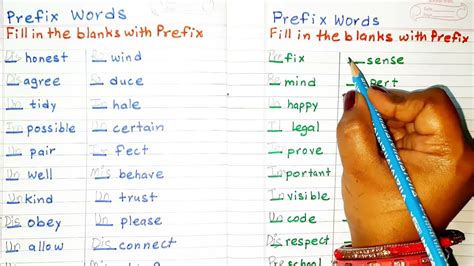 Prefix Words
Fill in the blanks with Prefix
Dis honest
Dis agree
Un tidy
Im possible
pair
Un well
Un kind
Dis obey
Un allow
Re wind
duce
In hale
Un certain
fect
Mis behave
Un trust
Un please
Dis connect
Prefix Words
Fill in the blanks with Prefix
Pre fix
Re mind
Un happy
Il legal
Im prove
Im portant
In visible
Un code
Dis respect
Pre school
sense
pert